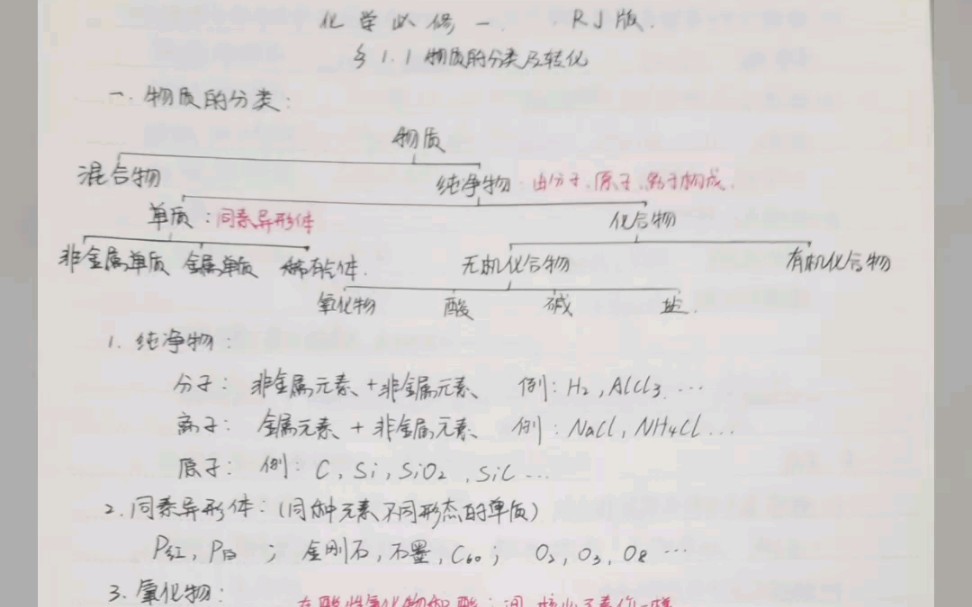 化学必修一. RJ版.
§1.1 物质的分类及转化
一. 物质的分类:
物质
混合物 纯净物. 由分子、原子、离子构成.
单质: 同素异形体 化合物
非金属单质 金属单质 稀有气体. 无机化合物 有机化合物
氧化物 酸 碱 盐.
1. 纯净物:
分子: 非金属元素+非金属元素 例: H₂, AlCl₃. ...
离子: 金属元素 + 非金属元素 例: NaCl, NH₄Cl...
原子: 例: C, Si, SiO₂, SiC ...
2. 同素异形体: (同种元素不同形态的单质)
P红, P白 ; 金刚石, 石墨, C₆₀; O₂, O₃, O₈ ...
3. 氧化物: